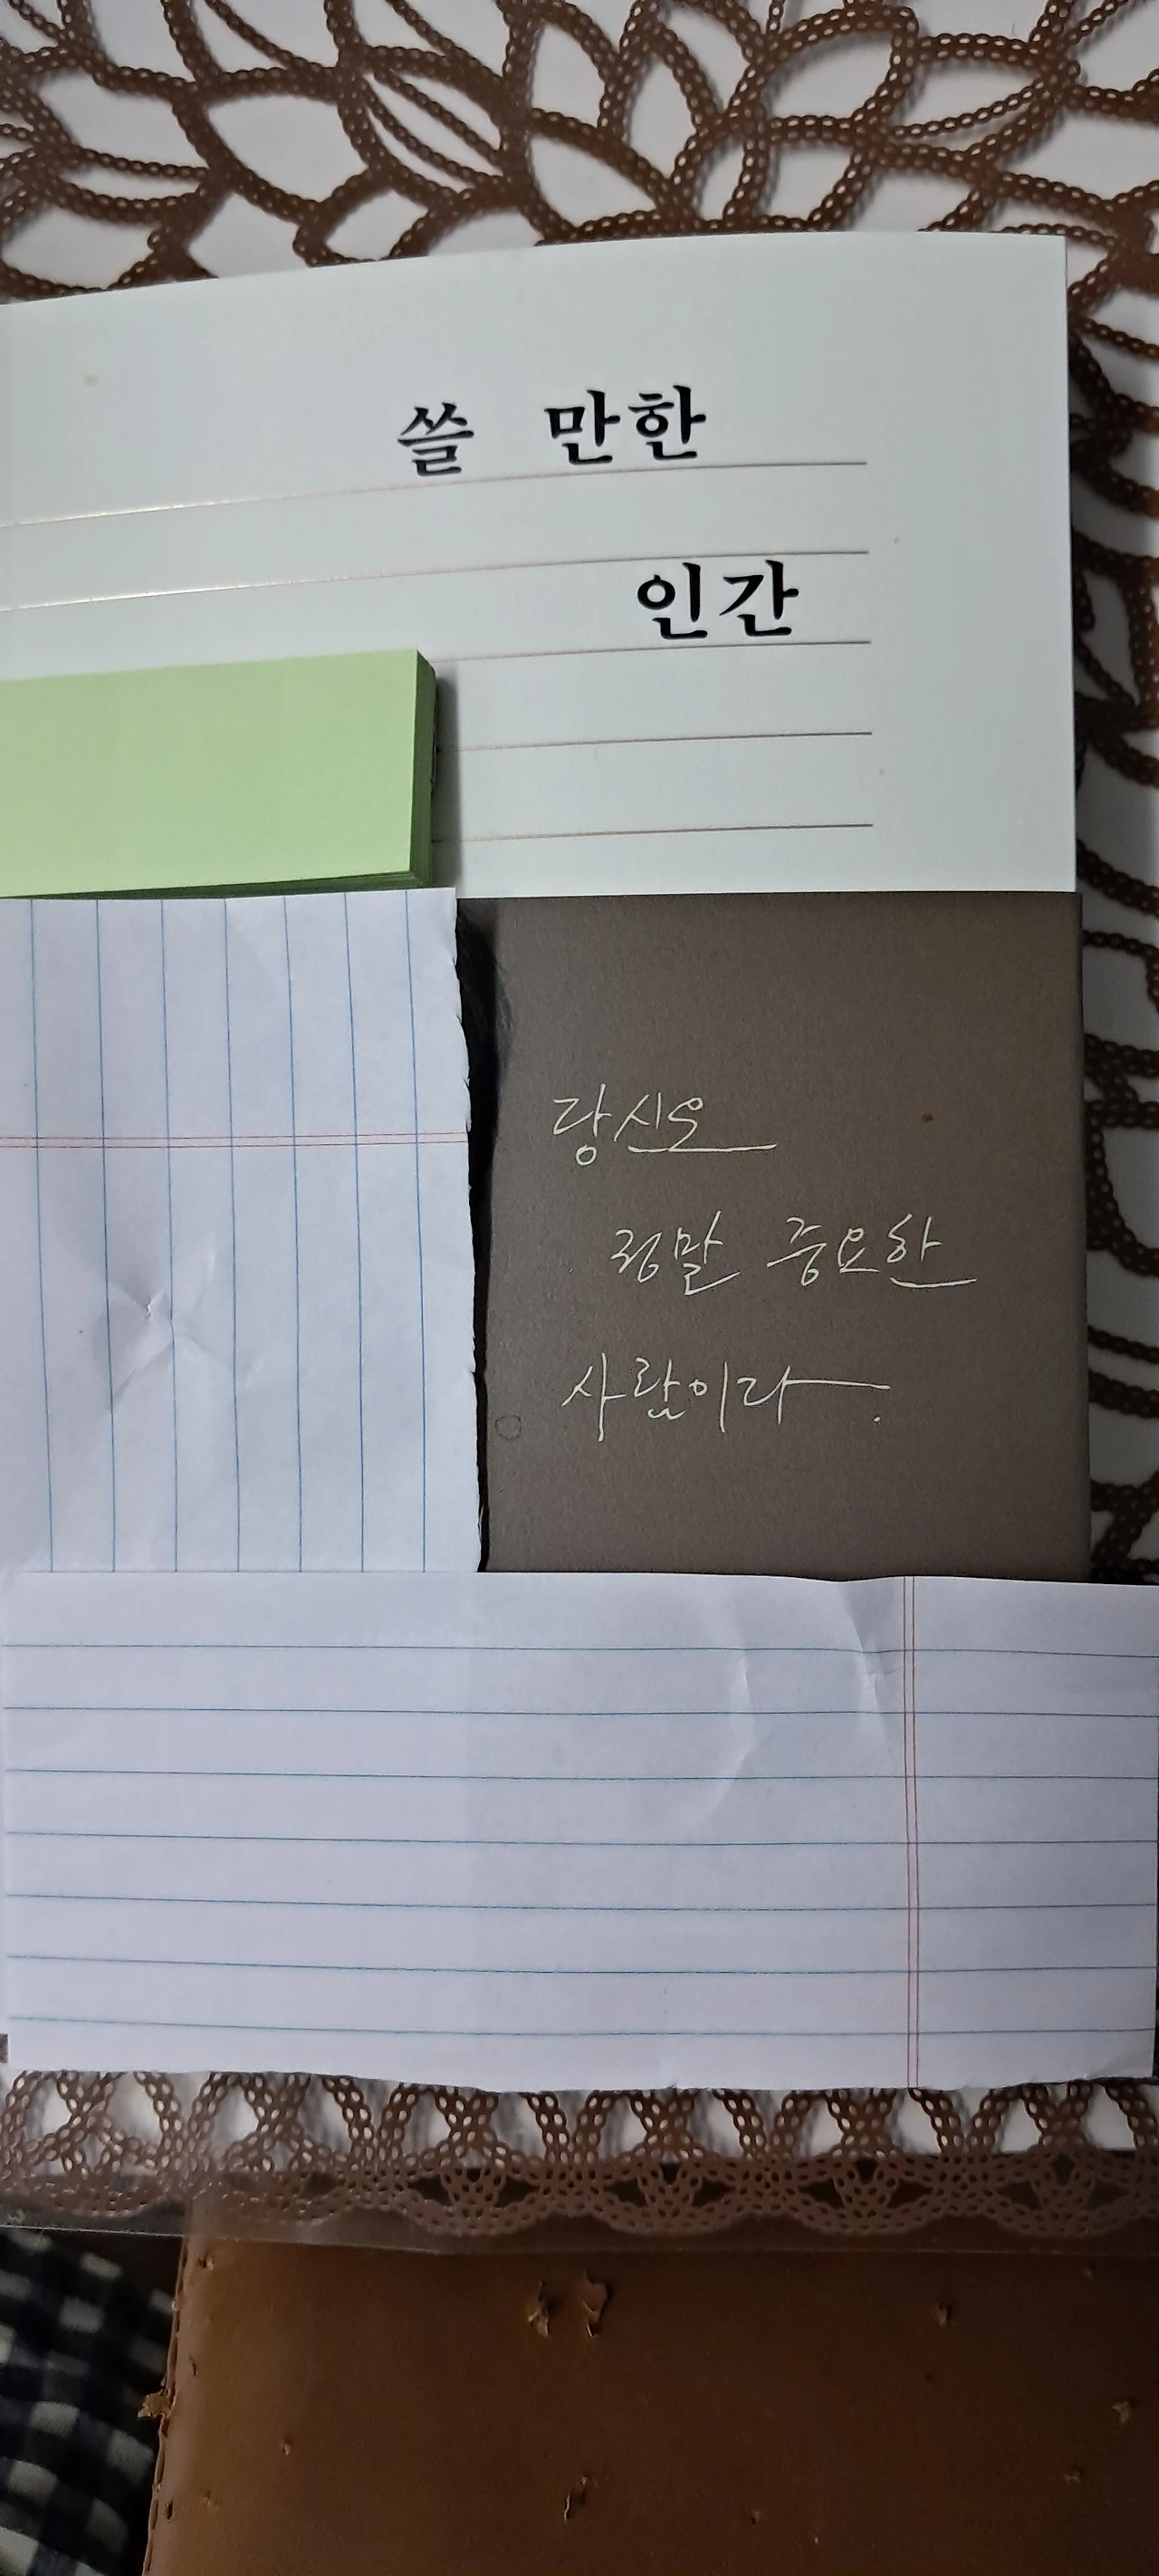 쓸 만한
인간
당신은
정말 중요한
사람이다.